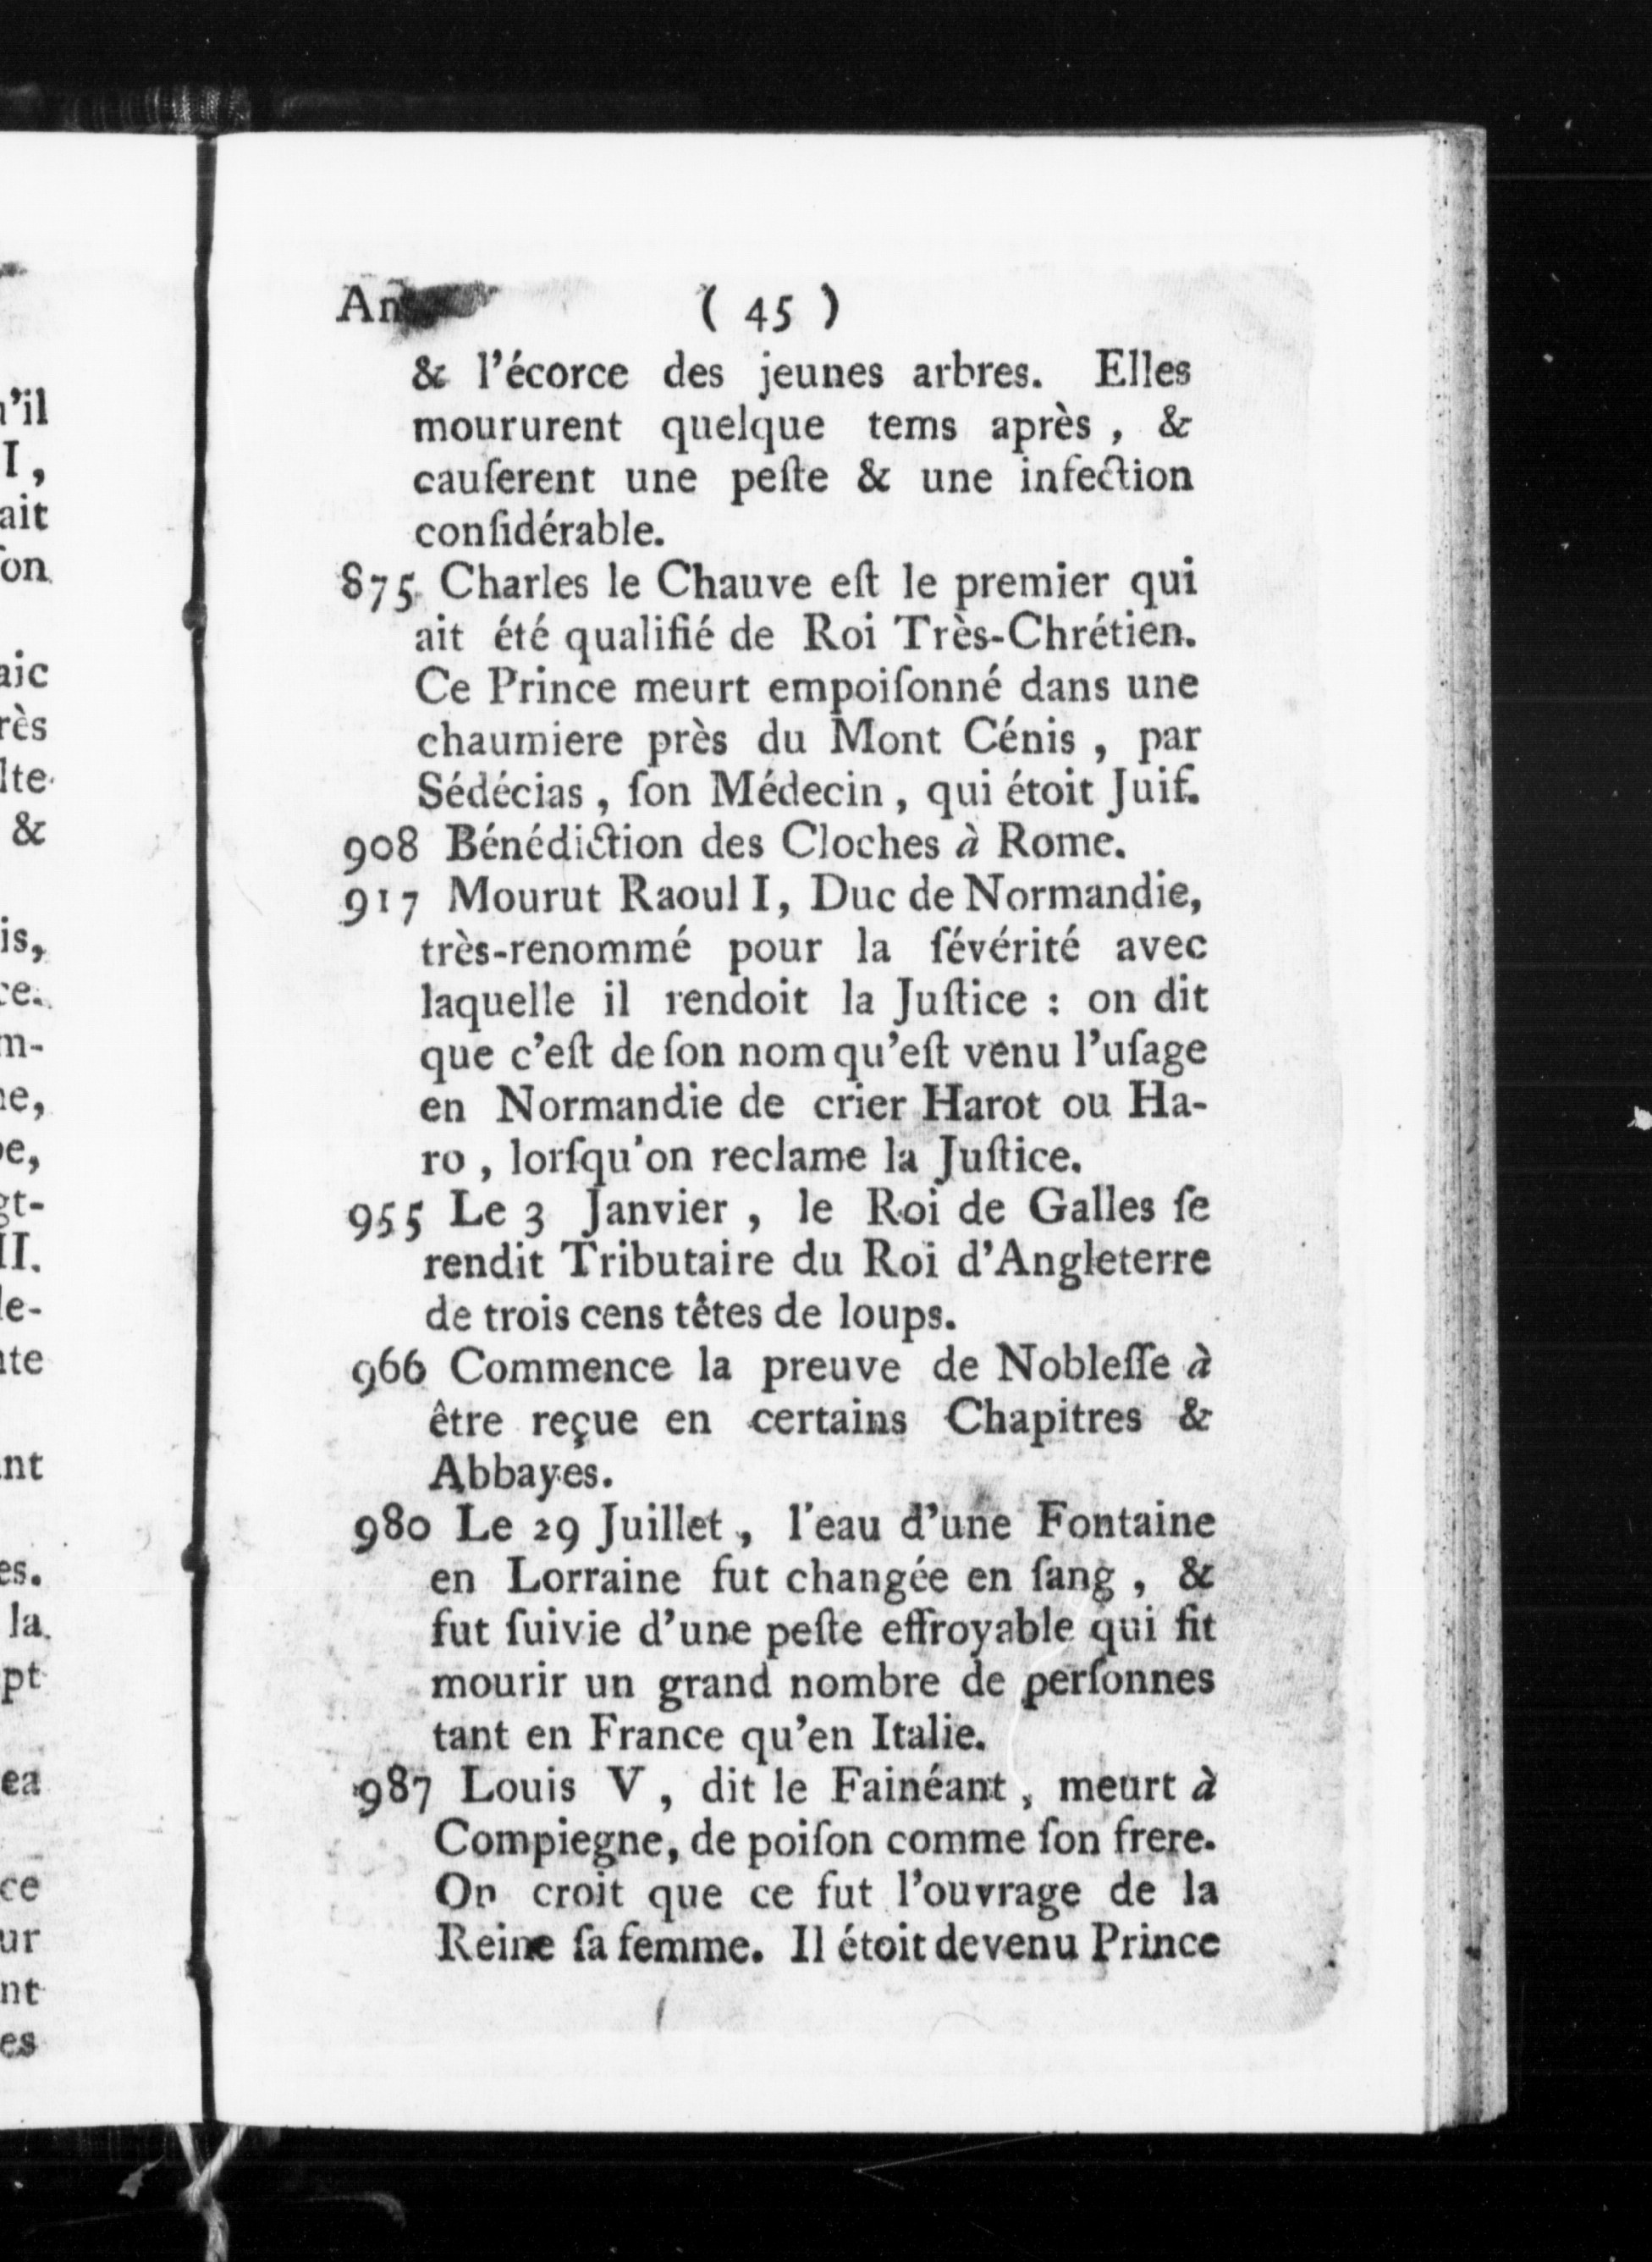 ( 45 )
& l'écorce des jeunes arbres. Elles
moururent quelque tems après, &
cauſerent une peſte & une infection
conſidérable.
875 Charles le Chauve eſt le premier qui
ait été qualifié de Roi Très-Chrétien.
Ce Prince meurt empoiſonné dans une
chaumiere près du Mont Cénis, par
Sédécias, ſon Médecin, qui étoit Juif.
908 Bénédiction des Cloches à Rome.
917 Mourut Raoul I, Duc de Normandie,
très-renommé pour la ſévérité avec
laquelle il rendoit la Juſtice : on dit
que c'eſt de ſon nom qu'eſt venu l'uſage
en Normandie de crier Harot ou Ha-
ro, lorſqu'on reclame la Juſtice.
955 Le 3 Janvier, le Roi de Galles ſe
rendit Tributaire du Roi d'Angleterre
de trois cens têtes de loups.
966 Commence la preuve de Nobleſſe à
être reçue en certains Chapitres &
Abbayes.
980 Le 29 Juillet, l'eau d'une Fontaine
en Lorraine fut changée en ſang, &
fut ſuivie d'une peſte effroyable qui fit
mourir un grand nombre de perſonnes
tant en France qu'en Italie.
987 Louis V, dit le Fainéant, meurt à
Compiegne, de poiſon comme ſon frere.
On croit que ce fut l'ouvrage de la
Reine ſa femme. Il étoit devenu Prince